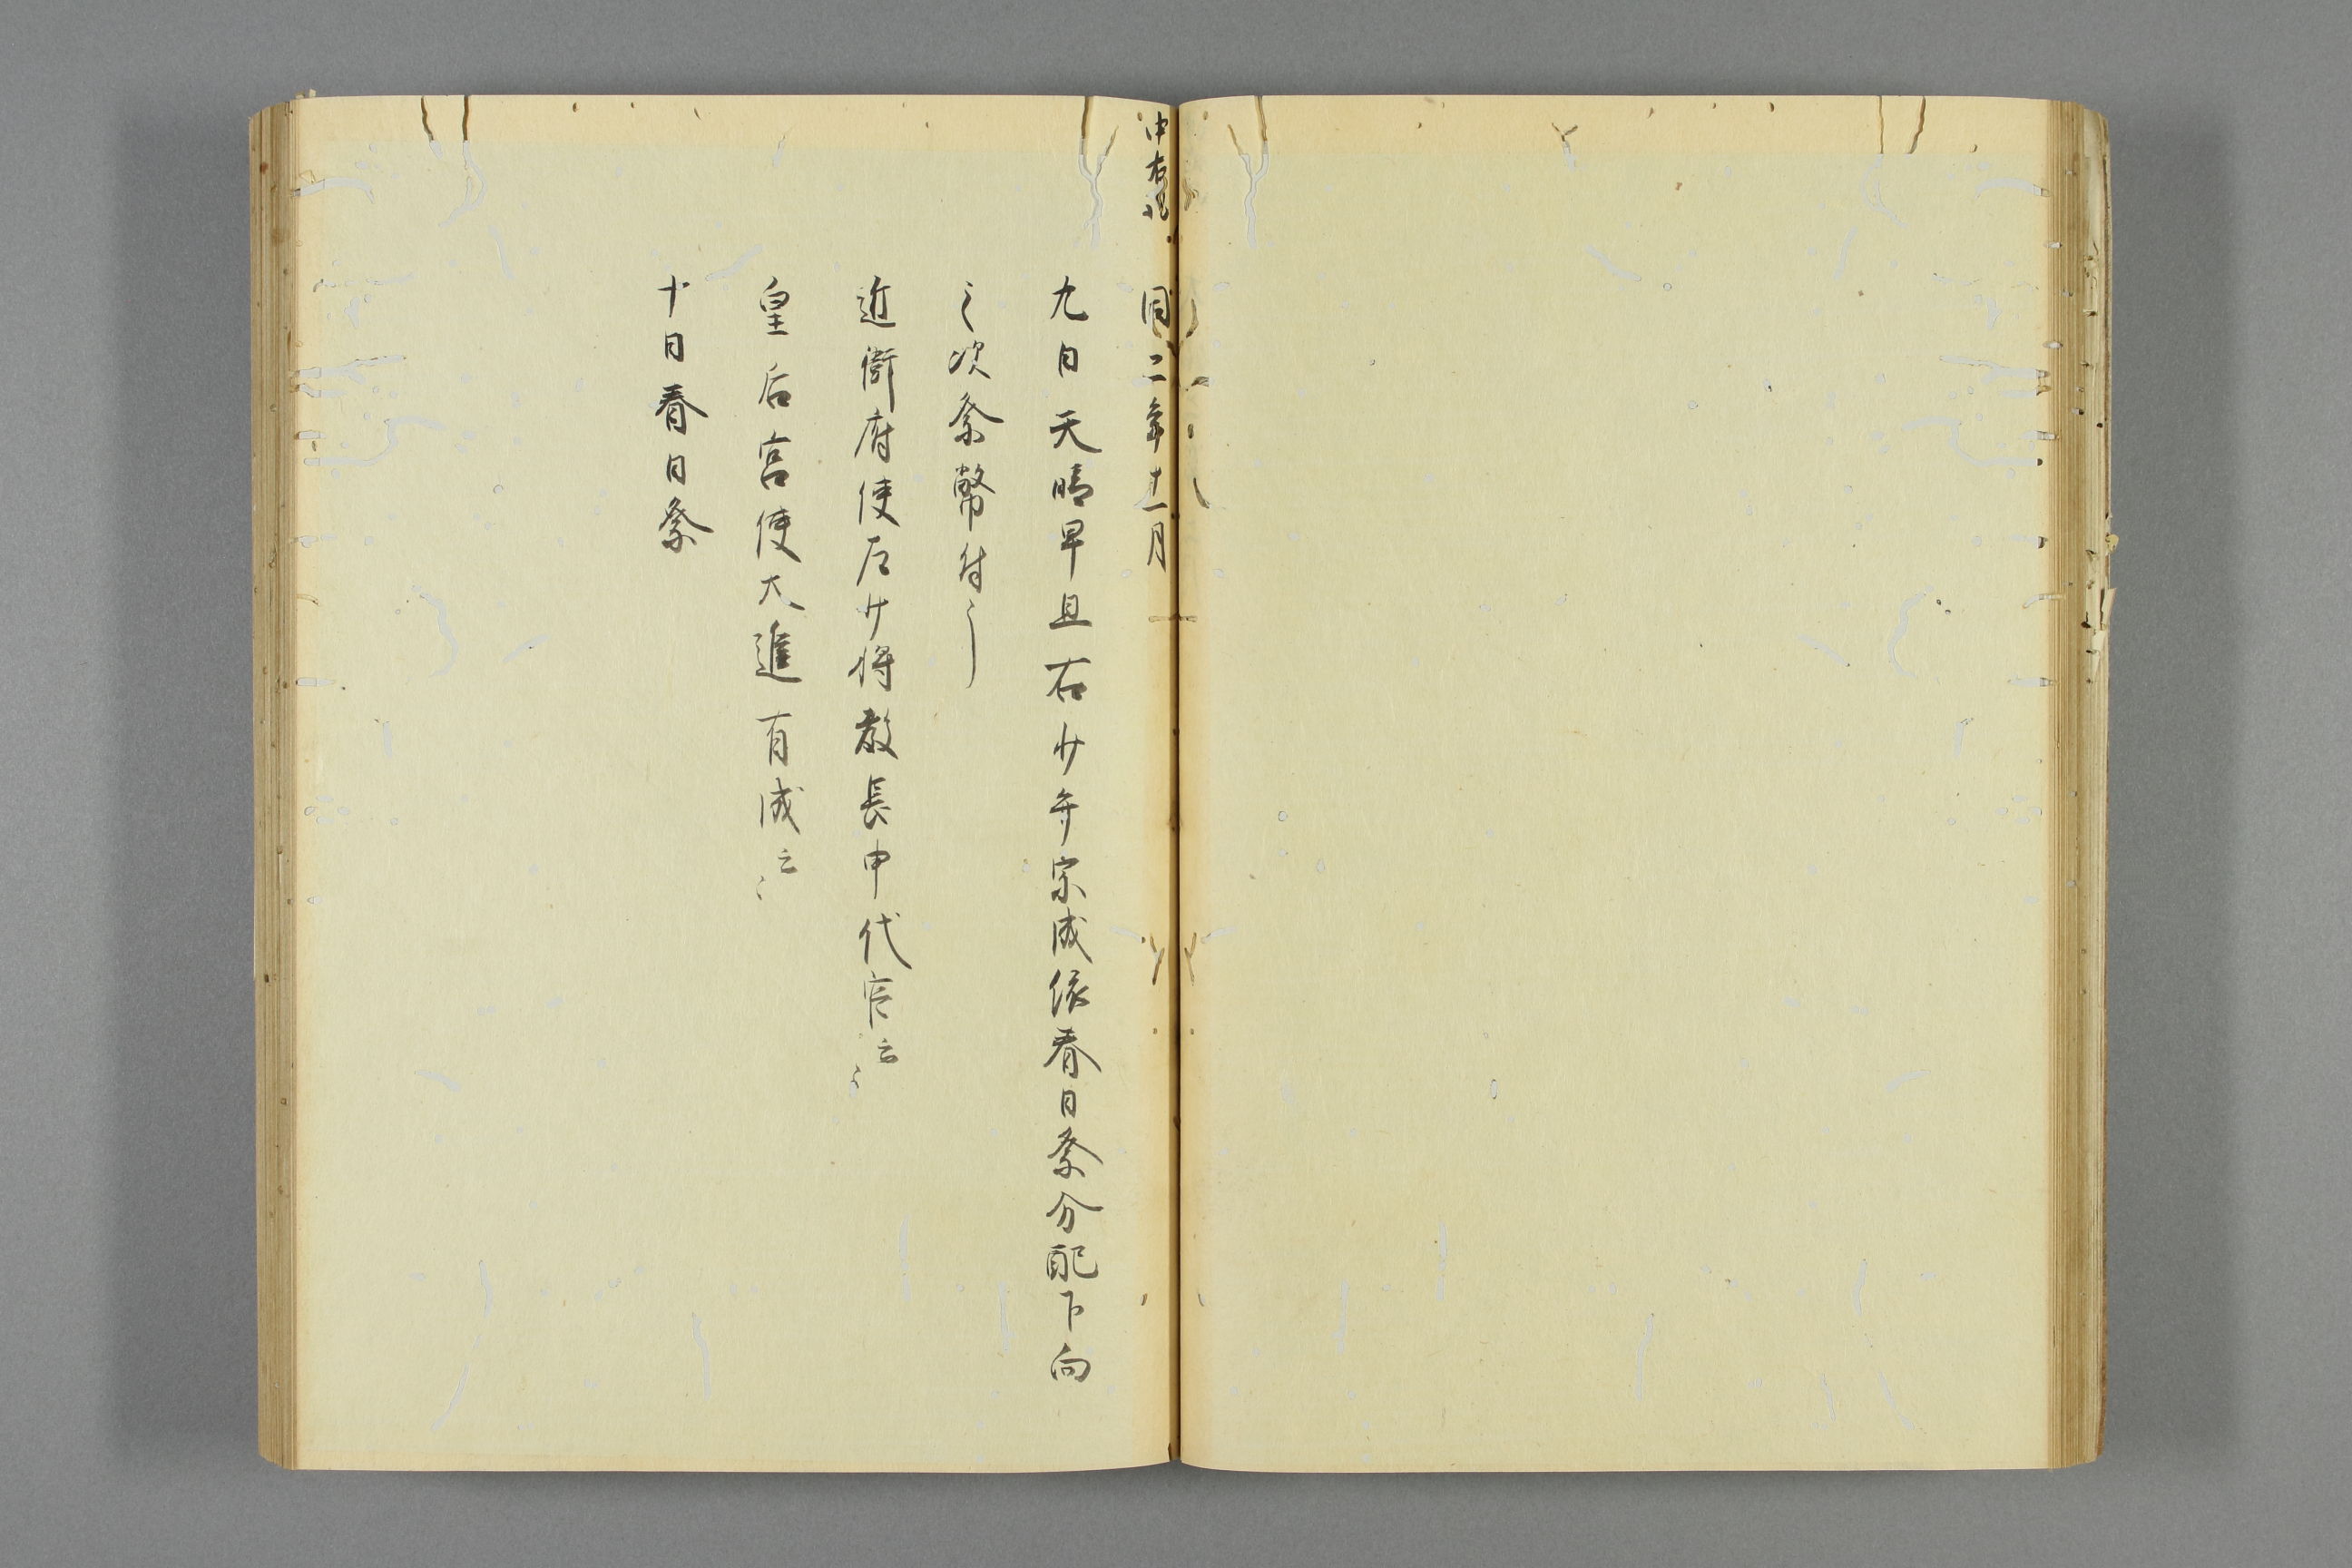 中右記
同二年十一月
九日天晴早旦右少弁宗成依春日祭分配下向
之次奉幣付之
近衛府使左少将教長申代官云々
皇后宮使大進有成云々
十日春日祭